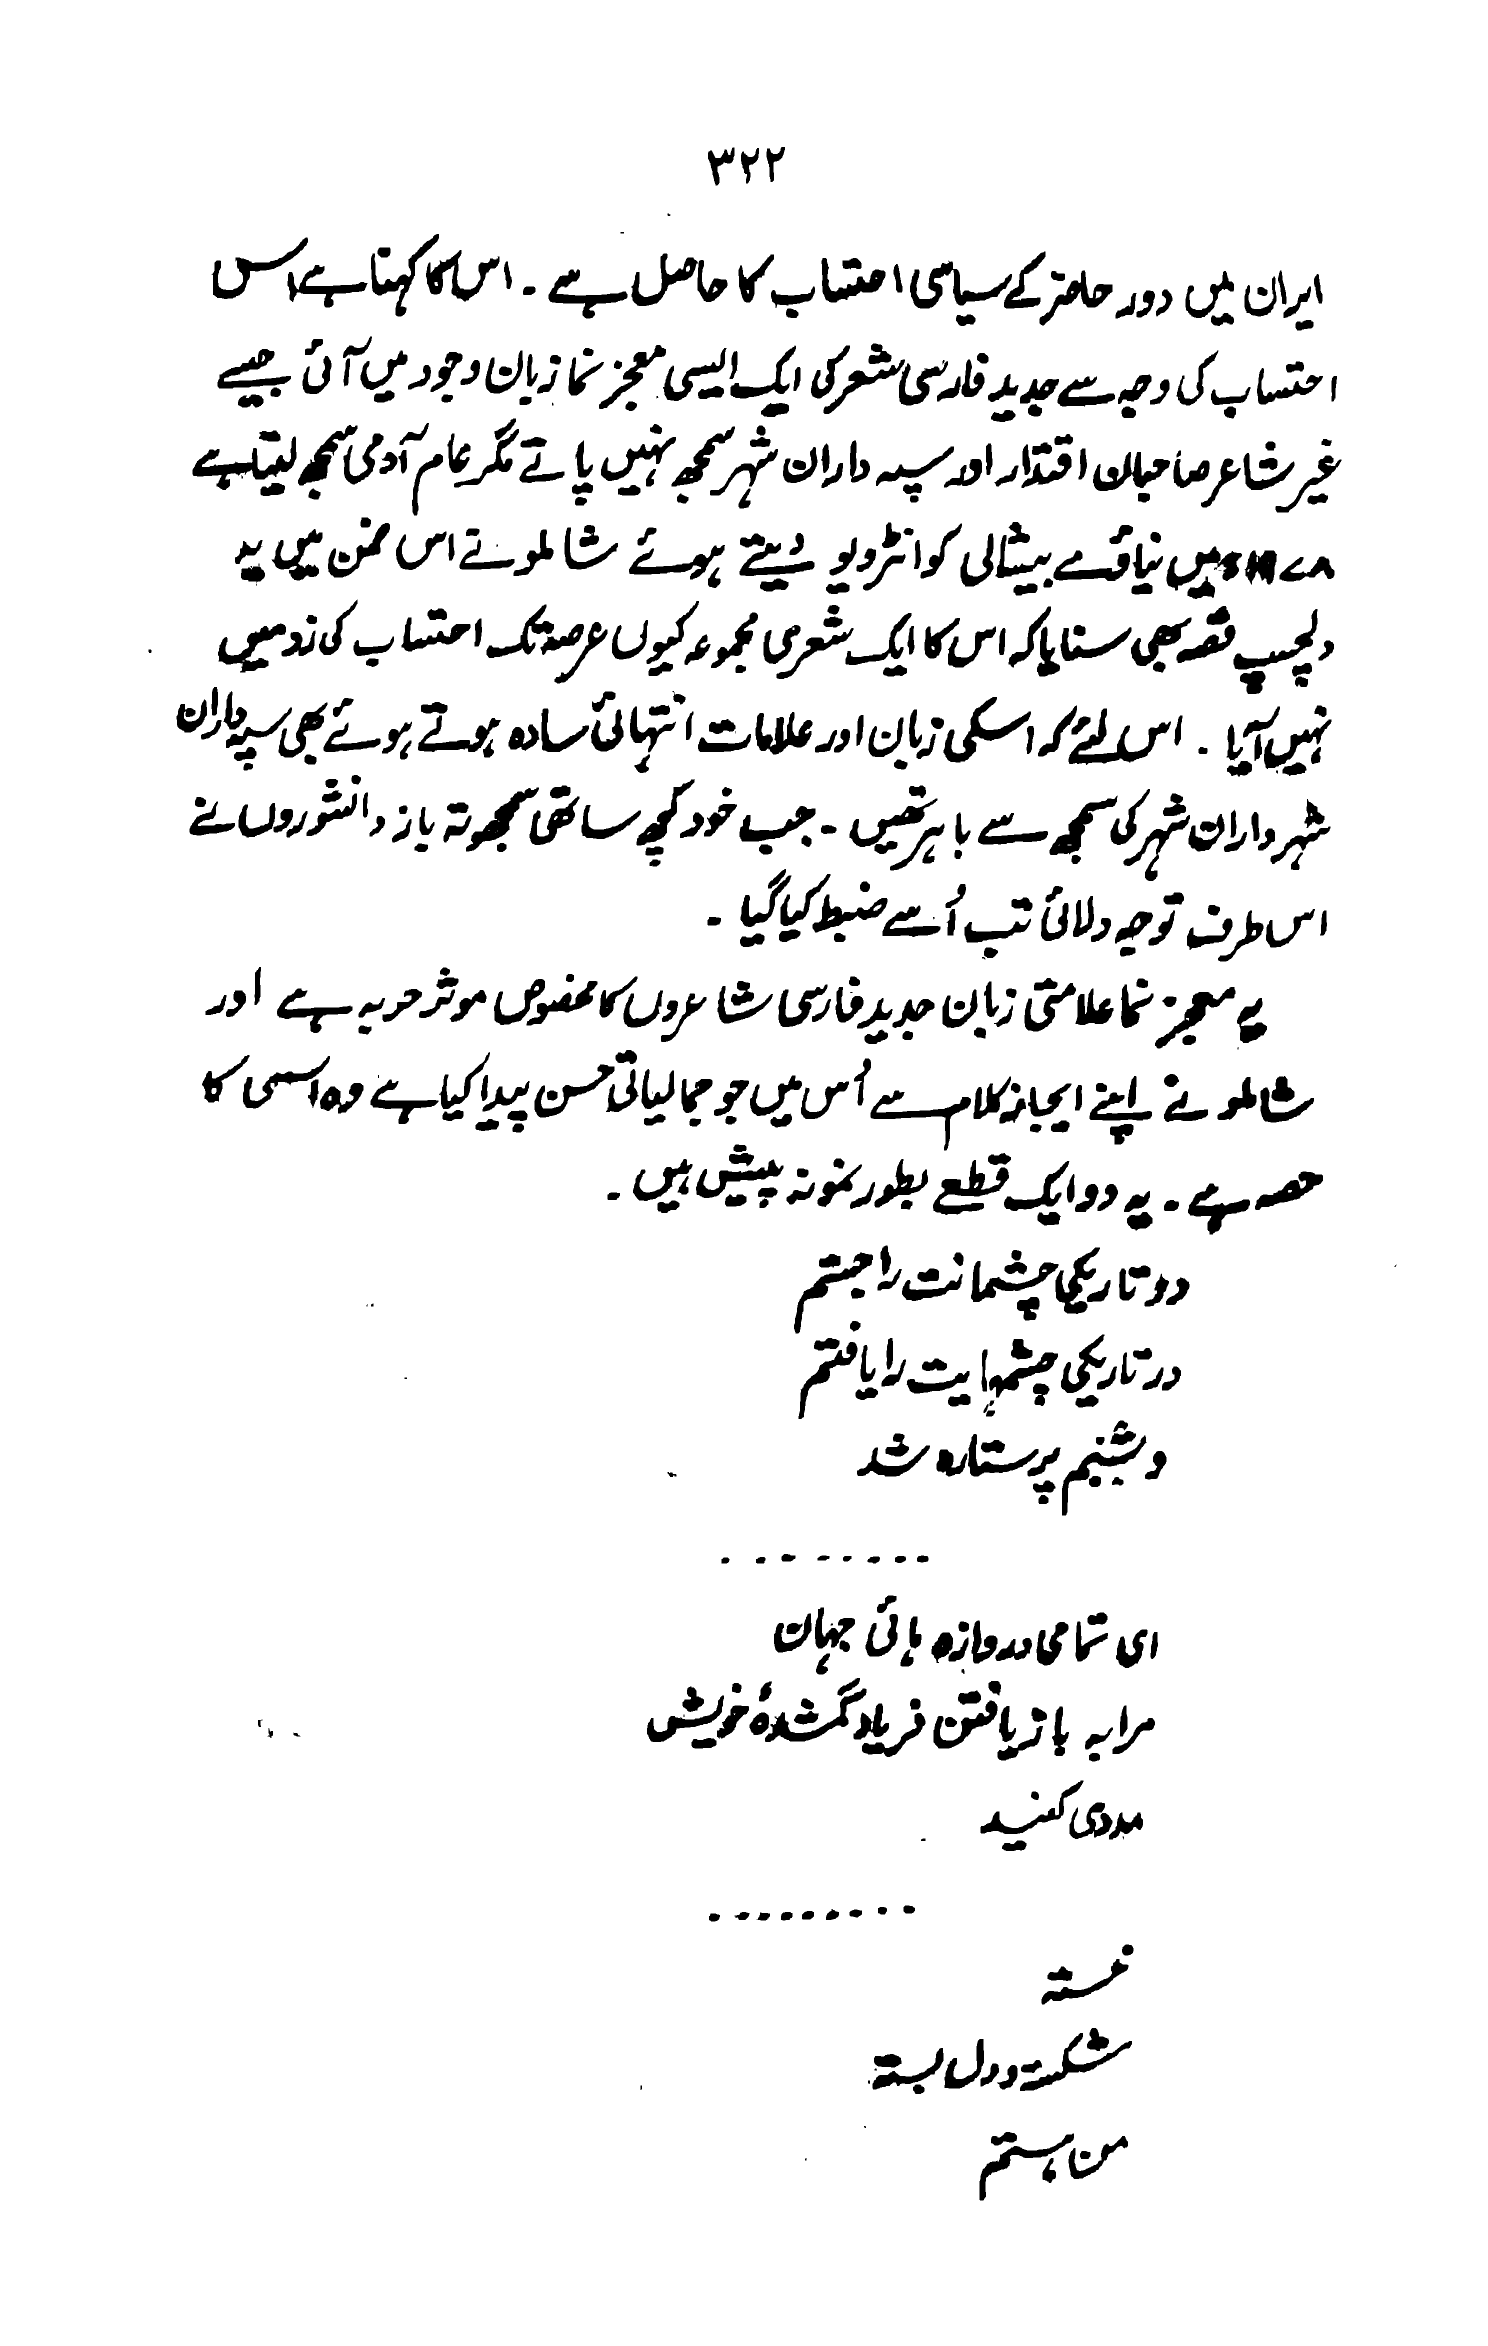 ۳۲۲
ایران میں دور حاضر کے سیاسی احتساب کا حاصل ہے ۔ اس کا کہنا ہے اس
احتساب کی وجہ سے جدید فارسی شعر کی ایک ایسی معجز نما زبان وجود میں آئی جیسے
غیر شاعر صاحبان اقتدار اور سپہ داران شہر سمجھ نہیں پاتے مگر عام آدمی سمجھ لیتا ہے
۱۹۷۸ء میں نیاؤے بیشالی کو انٹرویو دیتے ہوئے شاملو نے اس ضمن میں یہ
دلچسپ قصہ بھی سنایا کہ اس کا ایک شعری مجموعہ کیوں عرصہ تک احتساب کی زد میں
نہیں آیا ۔ اس لئے کہ اسکی زبان اور علامات انتہائی سادہ ہوتے ہوئے بھی سپہ داران
شہر داران شہر کی سمجھ سے باہر تھیں ۔ جب خود کچھ ساتھی سمجھوتہ باز دانشوروں نے
اس طرف توجہ دلائی تب اُسے ضبط کیا گیا ۔
یہ معجز نما علامتی زبان جدید فارسی شاعروں کا مخصوص موثر حربہ ہے اور
شاملو نے اپنے ایجاز کلام سے اُس میں جو جمالیاتی حسن پیدا کیا ہے وہ اسی کا
حصہ ہے ۔ یہ دو ایک قطعے بطور نمونہ پیش ہیں ۔
دو تاریکی چشمانت را جستم
در تاریکی چشمہایت را یافتم
و شبنم پرستارہ شد
۔ ۔ ۔ ۔ ۔ ۔ ۔ ۔
ای تمامی دروازہ ہائی جہان
مرا بہ باز یافتن فریاد گمشدۂ خویش
مددی کنید
۔ ۔ ۔ ۔ ۔ ۔ ۔ ۔ ۔
خستہ
شکستہ و دل بستہ
من ہستم